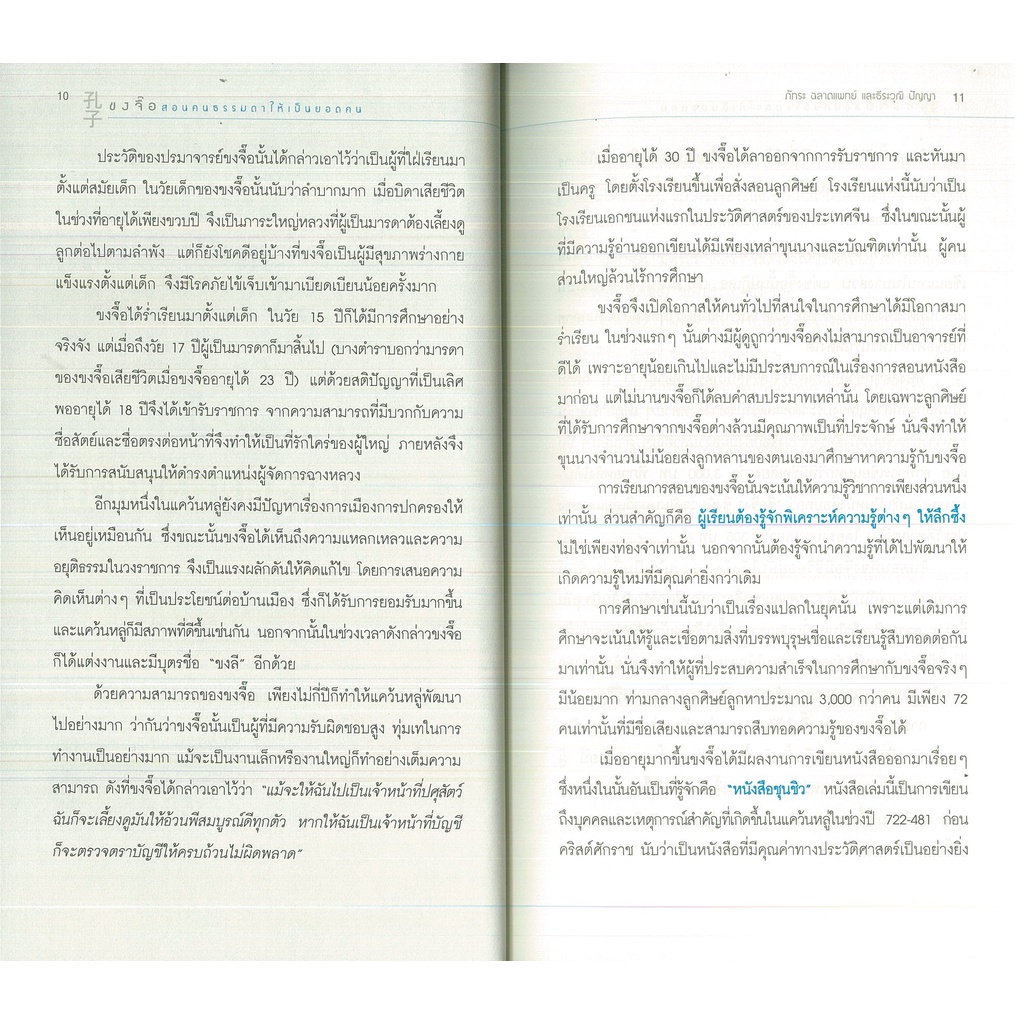 10
孔子
ขงจื๊อสอนคนธรรมดาให้เป็นยอดคน
ประวัติของปรมาจารย์ขงจื๊อนั้นได้กล่าวเอาไว้ว่าเป็นผู้ที่ใฝ่เรียนมา
ตั้งแต่สมัยเด็ก ในวัยเด็กของขงจื๊อนั้นนับว่าลำบากมาก เมื่อบิดาเสียชีวิต
ในช่วงที่อายุได้เพียงขวบปี จึงเป็นภาระใหญ่หลวงที่ผู้เป็นมารดาต้องเลี้ยงดู
ลูกต่อไปตามลำพัง แต่ก็ยังโชคดีอยู่บ้างที่ขงจื๊อเป็นผู้มีสุขภาพร่างกาย
แข็งแรงตั้งแต่เด็ก จึงมีโรคภัยไข้เจ็บเข้ามาเบียดเบียนน้อยครั้งมาก
ขงจื๊อได้ร่ำเรียนมาตั้งแต่เด็ก ในวัย 15 ปีก็ได้มีการศึกษาอย่าง
จริงจัง แต่เมื่อถึงวัย 17 ปีผู้เป็นมารดาก็มาสิ้นไป (บางตำราบอกว่ามารดา
ของขงจื๊อเสียชีวิตเมื่อขงจื๊ออายุได้ 23 ปี) แต่ด้วยสติปัญญาที่เป็นเลิศ
พออายุได้ 18 ปีจึงได้เข้ารับราชการ จากความสามารถที่มีบวกกับความ
ซื่อสัตย์และซื่อตรงต่อหน้าที่จึงทำให้เป็นที่รักใคร่ของผู้ใหญ่ ภายหลังจึง
ได้รับการสนับสนุนให้ดำรงตำแหน่งผู้จัดการฉางหลวง
อีกมุมหนึ่งในแคว้นหลู่ยังคงมีปัญหาเรื่องการเมืองการปกครองให้
เห็นอยู่เหมือนกัน ซึ่งขณะนั้นขงจื๊อได้เห็นถึงความแหลกเหลวและความ
อยุติธรรมในวงราชการ จึงเป็นแรงผลักดันให้คิดแก้ไข โดยการเสนอความ
คิดเห็นต่างๆ ที่เป็นประโยชน์ต่อบ้านเมือง ซึ่งก็ได้รับการยอมรับมากขึ้น
และแคว้นหลู่ก็มีสภาพที่ดีขึ้นเช่นกัน นอกจากนั้นในช่วงเวลาดังกล่าวขงจื๊อ
ก็ได้แต่งงานและมีบุตรชื่อ "ขงลี" อีกด้วย
ด้วยความสามารถของขงจื๊อ เพียงไม่กี่ปีก็ทำให้แคว้นหลู่พัฒนา
ไปอย่างมาก ว่ากันว่าขงจื๊อนั้นเป็นผู้ที่มีความรับผิดชอบสูง ทุ่มเทในการ
ทำงานเป็นอย่างมาก แม้จะเป็นงานเล็กหรืองานใหญ่ก็ทำอย่างเต็มความ
สามารถ ดังที่ขงจื๊อได้กล่าวเอาไว้ว่า "แม้จะให้ฉันไปเป็นเจ้าหน้าที่ปศุสัตว์
ฉันก็จะเลี้ยงดูมันให้อ้วนพีสมบูรณ์ดีทุกตัว หากให้ฉันเป็นเจ้าหน้าที่บัญชี
ก็จะตรวจตราบัญชีให้ครบถ้วนไม่ผิดพลาด"
ภัทระ ฉลาดแพทย์ และธีระวุฒิ ปัญญา 11
เมื่ออายุได้ 30 ปี ขงจื๊อได้ลาออกจากการรับราชการ และหันมา
เป็นครู โดยตั้งโรงเรียนขึ้นเพื่อสั่งสอนลูกศิษย์ โรงเรียนแห่งนี้นับว่าเป็น
โรงเรียนเอกชนแห่งแรกในประวัติศาสตร์ของประเทศจีน ซึ่งในขณะนั้นผู้
ที่มีความรู้อ่านออกเขียนได้มีเพียงเหล่าขุนนางและบัณฑิตเท่านั้น ผู้คน
ส่วนใหญ่ล้วนไร้การศึกษา
ขงจื๊อจึงเปิดโอกาสให้คนทั่วไปที่สนใจในการศึกษาได้มีโอกาสมา
ร่ำเรียน ในช่วงแรกๆ นั้นต่างมีผู้ดูถูกว่าขงจื๊อคงไม่สามารถเป็นอาจารย์ที่
ดีได้ เพราะอายุน้อยเกินไปและไม่มีประสบการณ์ในเรื่องการสอนหนังสือ
มาก่อน แต่ไม่นานขงจื๊อก็ได้ลบคำสบประมาทเหล่านั้น โดยเฉพาะลูกศิษย์
ที่ได้รับการศึกษาจากขงจื๊อต่างล้วนมีคุณภาพเป็นที่ประจักษ์ นั่นจึงทำให้
ขุนนางจำนวนไม่น้อยส่งลูกหลานของตนเองมาศึกษาหาความรู้กับขงจื๊อ
การเรียนการสอนของขงจื๊อนั้นจะเน้นให้ความรู้วิชาการเพียงส่วนหนึ่ง
เท่านั้น ส่วนสำคัญก็คือ ผู้เรียนต้องรู้จักพิเคราะห์ความรู้ต่างๆ ให้ลึกซึ้ง
ไม่ใช่เพียงท่องจำเท่านั้น นอกจากนั้นต้องรู้จักนำความรู้ที่ได้ไปพัฒนาให้
เกิดความรู้ใหม่ที่มีคุณค่ายิ่งกว่าเดิม
การศึกษาเช่นนี้นับว่าเป็นเรื่องแปลกในยุคนั้น เพราะแต่เดิมการ
ศึกษาจะเน้นให้รู้และเชื่อตามสิ่งที่บรรพบุรุษเชื่อและเรียนรู้สืบทอดต่อกัน
มาเท่านั้น นั่นจึงทำให้ผู้ที่ประสบความสำเร็จในการศึกษากับขงจื๊อจริงๆ
มีน้อยมาก ท่ามกลางลูกศิษย์ลูกหาประมาณ 3,000 กว่าคน มีเพียง 72
คนเท่านั้นที่มีชื่อเสียงและสามารถสืบทอดความรู้ของขงจื๊อได้
เมื่ออายุมากขึ้นขงจื๊อได้มีผลงานการเขียนหนังสือออกมาเรื่อยๆ
ซึ่งหนึ่งในนั้นอันเป็นที่รู้จักคือ "หนังสือชุนชิว" หนังสือเล่มนี้เป็นการเขียน
ถึงบุคคลและเหตุการณ์สำคัญที่เกิดขึ้นในแคว้นหลู่ในช่วงปี 722-481 ก่อน
คริสต์ศักราช นับว่าเป็นหนังสือที่มีคุณค่าทางประวัติศาสตร์เป็นอย่างยิ่ง